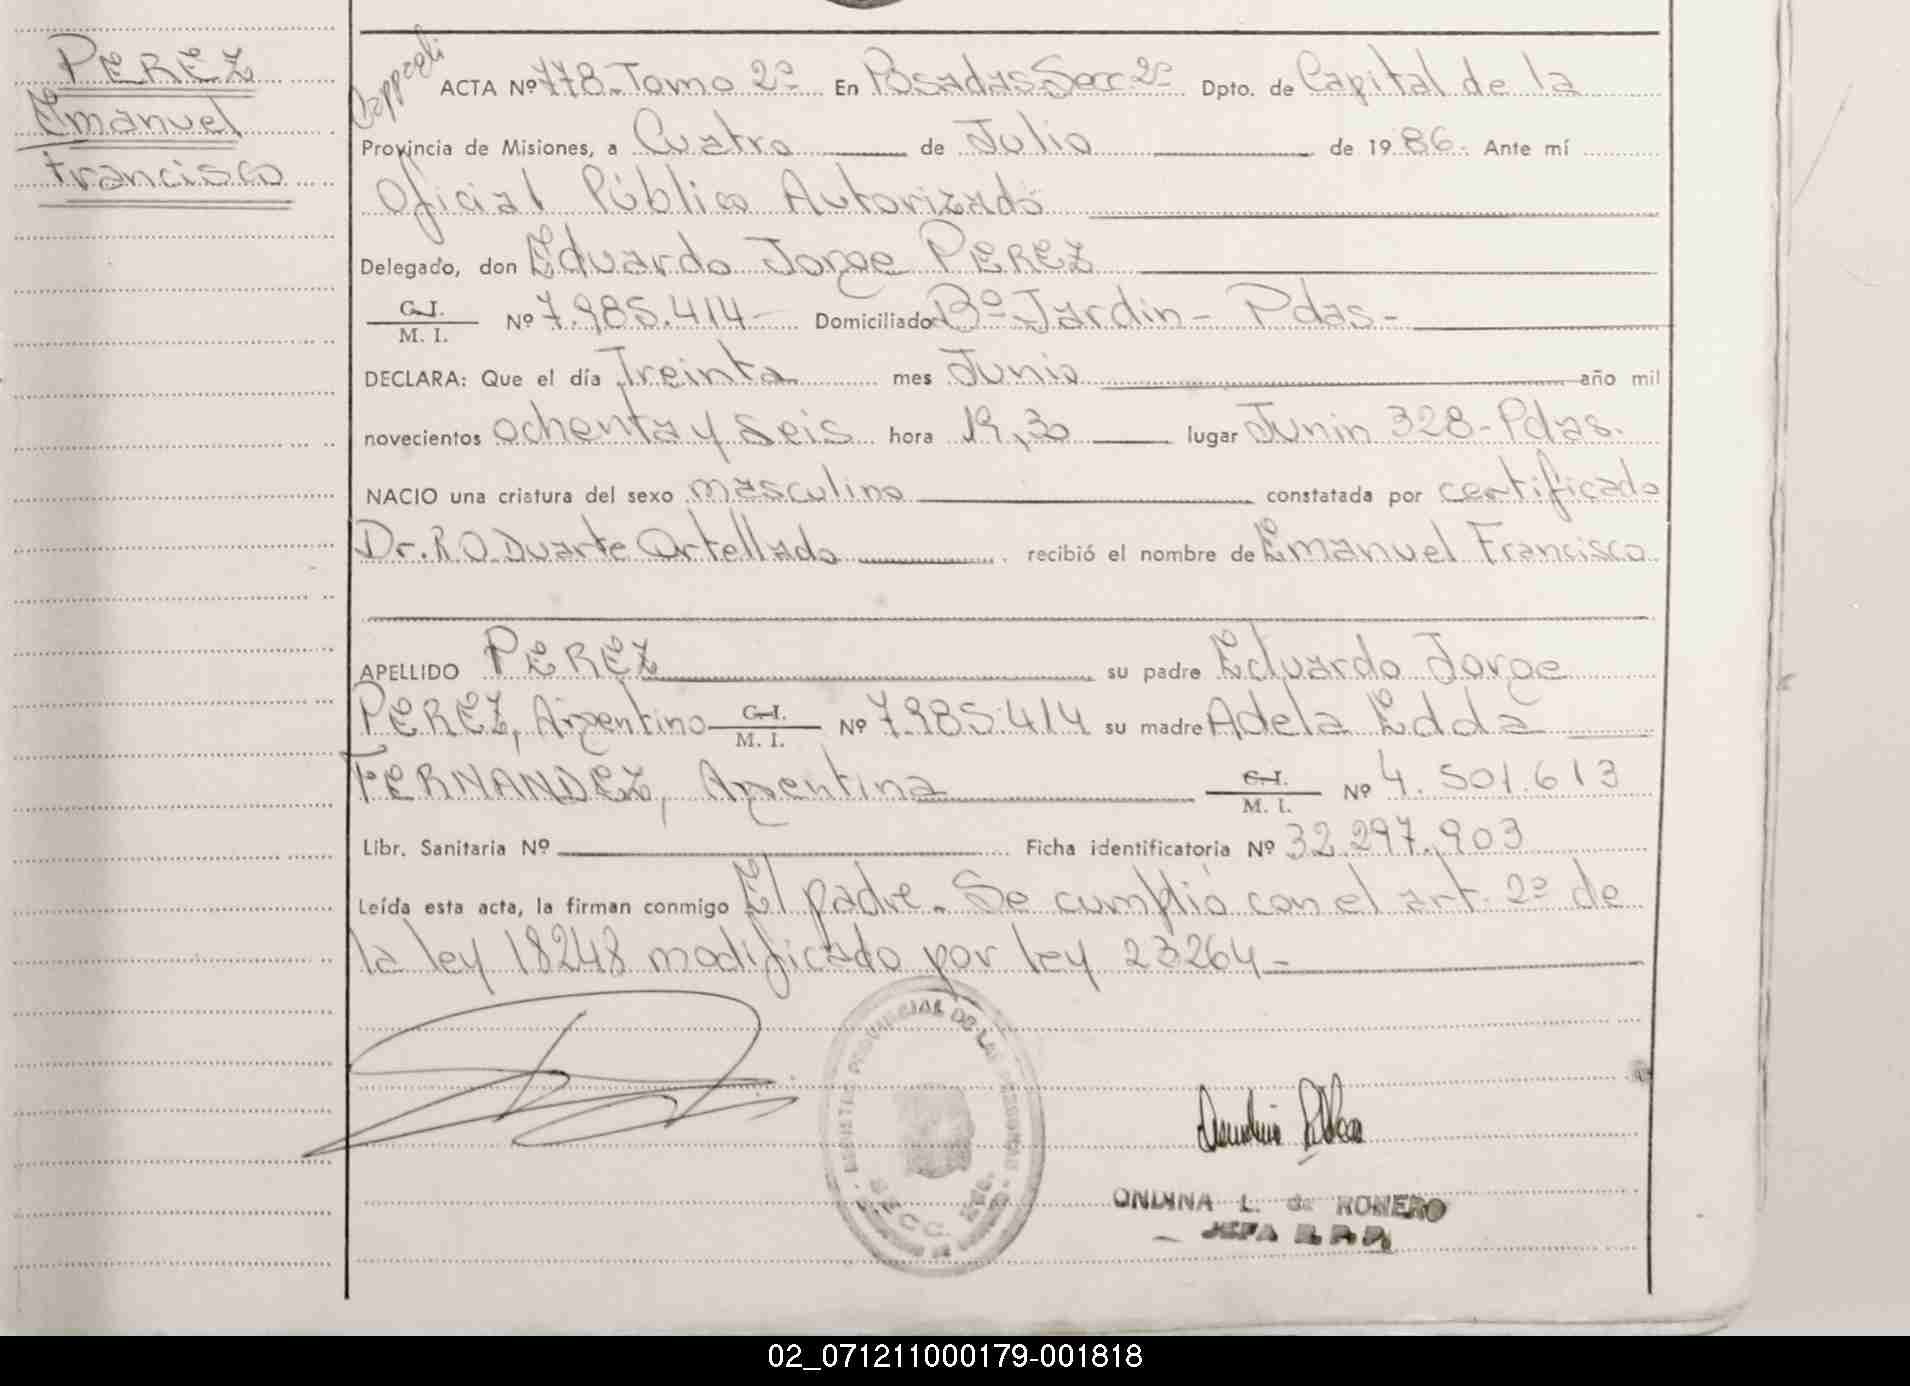 PEREZ
Emanuel
Francisco
ACTA Nº 778-Tomo 2º En Posadas Secc 2º Dpto. de Capital de la
Provincia de Misiones, a Cuatro de Julio de 1986. Ante mí
Oficial Público Autorizado
Delegado, don Eduardo Jorge PEREZ
C.I.
M. I. Nº 7.985.414- Domiciliado Bº Jardin- Pdas-
DECLARA: Que el día Treinta mes Junio año mil
novecientos ochenta y seis hora 19,30 lugar Junin 328-Pdas.
NACIO una criatura del sexo masculino constatada por certificado
Dr. R.O. Duarte Ortellado recibió el nombre de Emanuel Francisco
APELLIDO PEREZ su padre Eduardo Jorge
PEREZ, Argentino C.I. M. I. Nº 7.985.414 su madre Adela Edda
FERNANDEZ, Argentina C.I. M. I. Nº 4.501.613
Libr. Sanitaria Nº Ficha identificatoria Nº 32.297.903
Leída esta acta, la firman conmigo El padre. Se cumplió con el art. 2º de
la ley 18248 modificado por ley 23264-
REGISTRO PROVINCIAL DE LAS PERSONAS
SECC.
ONDINA L. de ROMERO
JEFA R. P. P.
02_071211000179-001818